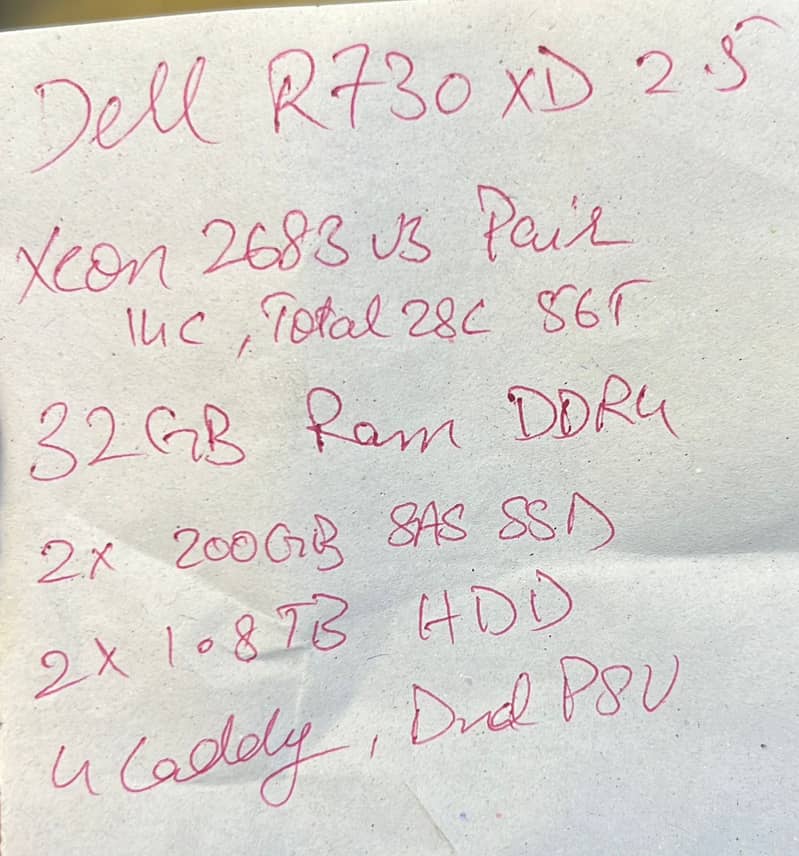 Dell R730 XD 2.5
Xeon 2683 v3 Pair
14C, Total 28C 56T
32GB Ram DDR4
2x 200GB SAS SSD
2x 1.8TB HDD
4 Caddy, Dual PSU